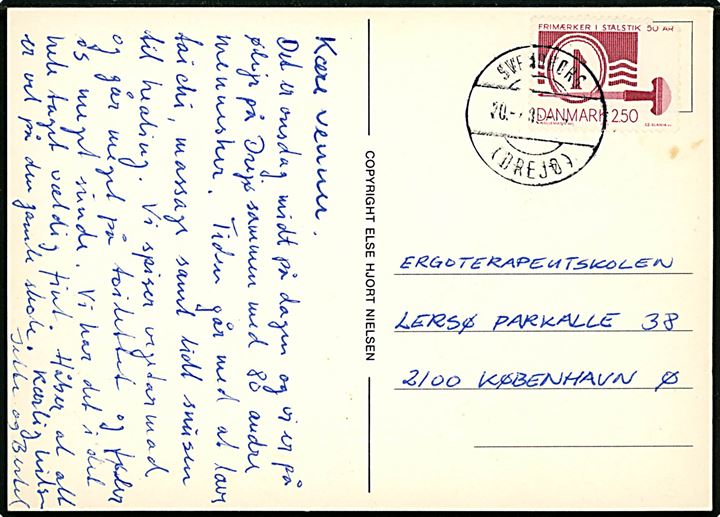 Kære venner.
Det er onsdag midt på dagen og vi er på
øliv på Drejø sammen med 80 andre
mennesker. Tiden går med at lave
taichi, massage samt lidt snusen
til healing. Vi spiser vegetarmad
og går meget på toilettet og føler
os meget sunde. Vi har det i det
hele taget vældig fint. Håber at alt
er vel på den gamle skole. Kærlig hilsen
Jette og Bertel
COPYRIGHT ELSE HJORT NIELSEN
FRIMÆRKER I STÅLSTIK 50 ÅR
DANMARK 2.50
SVENDBORG
(DREJØ)
ERGOTERAPEUTSKOLEN
LERSØ PARKALLE 38
2100 KØBENHAVN Ø